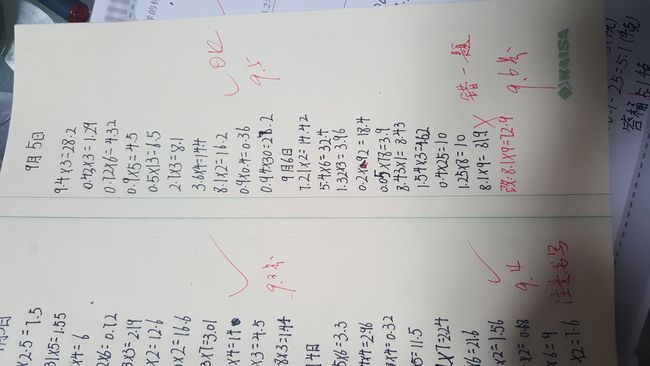 9月5日
9.4×3=28.2
0.43×3=1.29
0.72×6=4.32
0.9×5=4.5
0.5×13=6.5
2.7×3=8.1
3.6×4=14.4
8.1×2=16.2
0.9×0.4=0.36
0.94×30=28.2
OK
9.5
9月6日
7.21×2=14.42
5.4×6=32.4
1.32×3=3.96
0.2×92=18.4
0.05×78=3.9
8.43×1=8.43
1.54×3=4.62
0.4×25=10
1.25×8=10
8.1×9=81.9
改:8.1×9=72.9
错一题
9.6
KAISA
×2.5=7.5
×4=6
×6=0.72
×3=2.19
×2=12.6
×2=16.6
×7=3.01
×3=4.5
8×3=1.44
9.3
4日
5×6=3.3
×4=2.96
×4=0.32
=11.5
×7=22.4
×6=21.6
×2=1.56
×2=0.68
×6=9
×2=7.6
9.4
注意书写
25=5.1(千克)